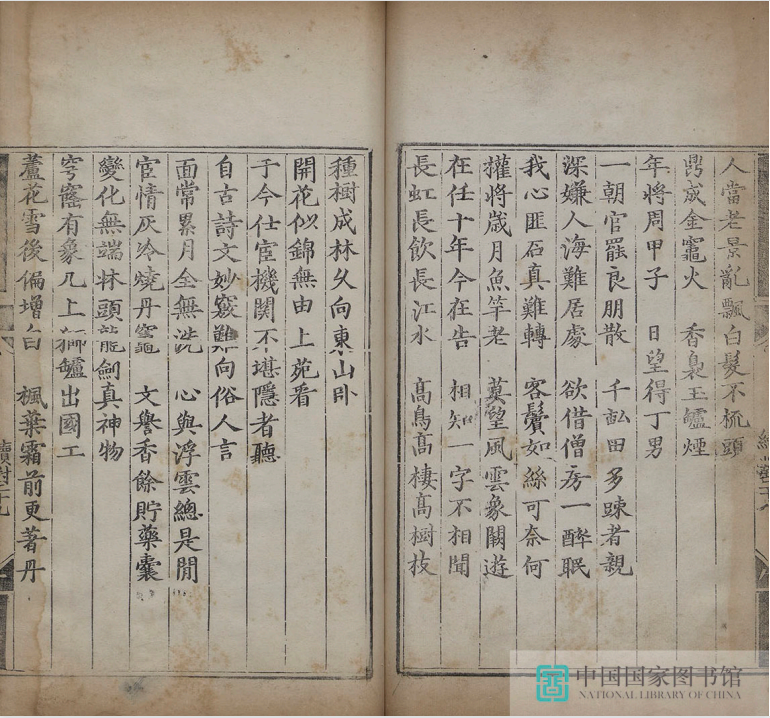 人當老景亂飄白髮不梳頭
鼎成金竈火 香裊玉鑪煙
年將周甲子 日望得丁男
一朝官罷良朋散 千畝田多踈者親
深嫌人海難居處 欲借僧房一醉眠
我心匪石真難轉 客鬢如絲可奈何
權將歲月魚竿老 莫望風雲象闕遊
在任十年今在告 相知一字不相聞
長虹長飲長江水 高鳥高棲高樹枝
種樹成林久向東山卧
開花似錦無由上苑看
于今仕宦機關不堪隱者聽
自古詩文妙竅難向俗人言
面常累月全無洗 心與浮雲總是閒
宦情灰冷燒丹竈 文譽香餘貯藥囊
變化無端牀頭龍劍真神物
穹窿有象几上獅鑪出國工
蘆花雪後偏增白 楓葉霜前更著丹
中国国家图书馆
NATIONAL LIBRARY OF CHINA